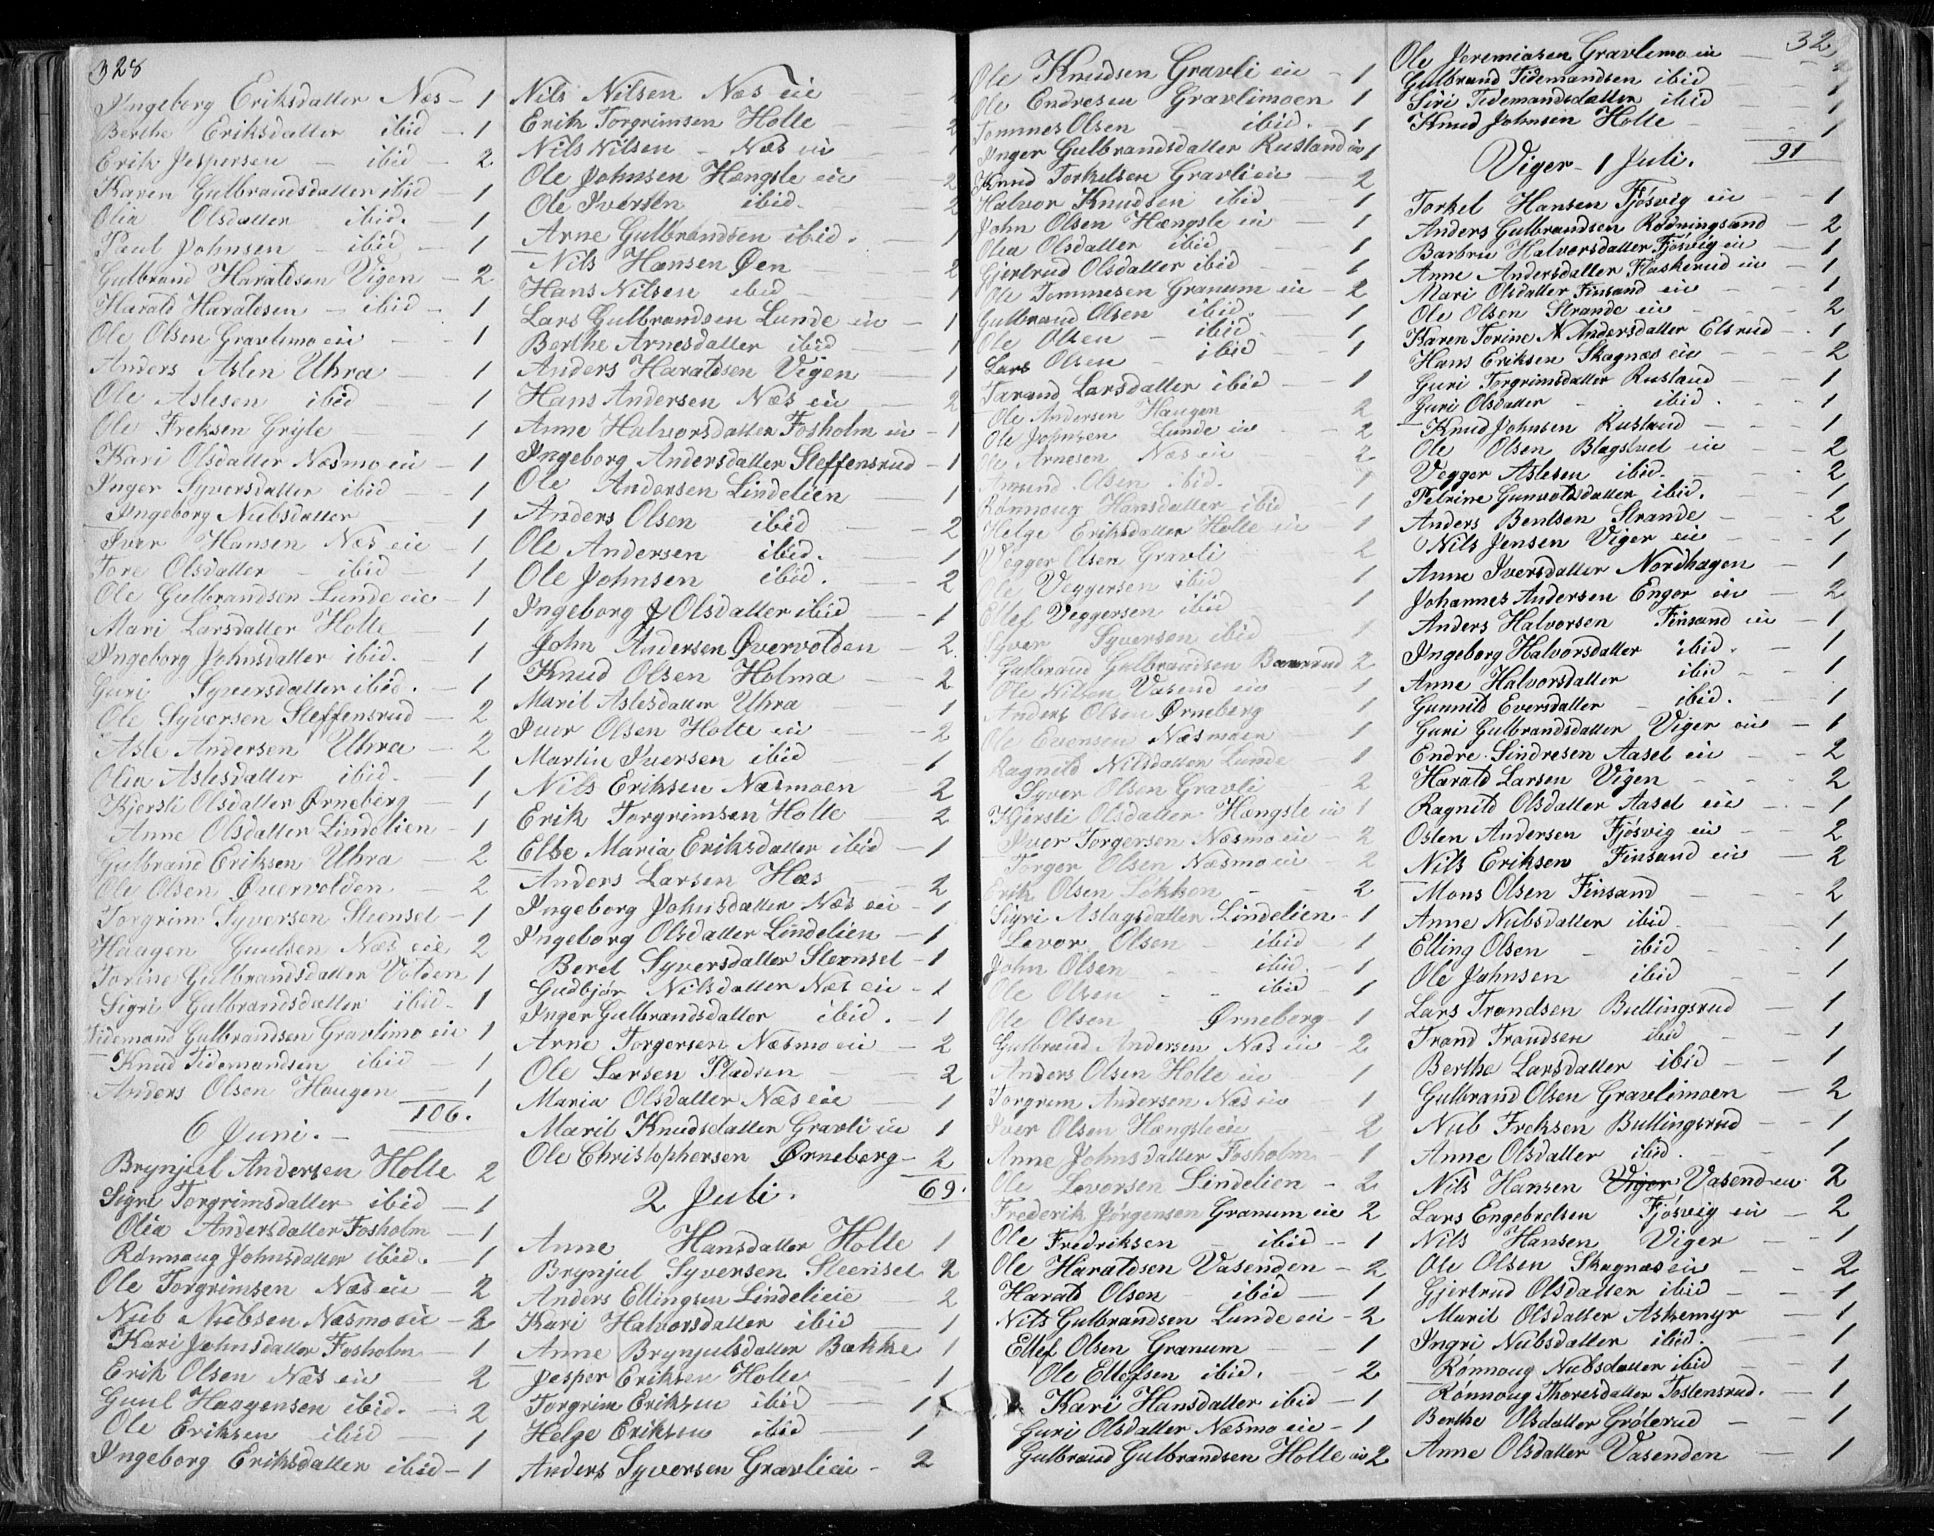 328
Ingeborg Eriksdatter Næs - 1
Berthe Eriksdatter ibid - 1
Erik Jespersen - ibid - 2
Karen Gulbrandsdatter ibid - 1
Olia Olsdatter ibid. - 1
Paul Johnsen - ibid - 1
Gulbrand Haraldsen Vigen - 2
Harald Haraldsen - ibid - 1
Ole Olsen Gravlimo eie - 1
Anders Aslen Uhra - 1
Ole Aslesen ibid - 1
Ole Freksen Gryte - 1
Kari Olsdatter Næsmo eie - 1
Inger Syversdatter ibid - 1
Ingeborg Nubsdatter 1
Iver Hansen Næs eie - 1
Tore Olsdatter - ibid - 1
Ole Gulbrandsen Lunde eie - 1
Mari Larsdatter Holte - 1
Ingeborg Johnsdatter ibid. - 1
Guri Syversdatter ibid. - 1
Ole Syversen Steffensrud - 2
Asle Andersen Uhra - 2
Olia Aslesdatter ibid. 1
Kjersti Olsdatter Ørneberg - 1
Anne Olsdatter Lindelien - 1
Gulbrand Eriksen Uhra - 2
Ole Olsen Øvervolden - 2
Torgrim Syversen Steenset - 1
Haagen Guulsen Næs eie 2
Torine Gulbrandsdatter Volden 1
Sigri Gulbrandsdatter ibid - 1
Tidemand Gulbrandsen Gravlimo eie 1
Knud Tidemandsen ibid 1
Anders Olsen Haugen - 1
106.
6 Juni. -
Brynjul Andersen Holte 2
Sigri Torgrimsdatter ibid - 1
Olia Andersdatter Fosholm - 1
Rønnoug Johnsdatter ibid. - 1
Ole Torgrimsen Næs eie - 2
Nub Nubsen Næsmo eie - 2
Kari Johnsdatter Fosholm - 1
Erik Olsen Næs eie 2
Guul Haagensen ibid. - 2
Ole Eriksen ibid - 1
Ingeborg Eriksdatter ibid - 1
Nils Nilsen Næs eie 2
Erik Torgrimsen Holte - 2
Nils Nilsen - Næs eie - 1
Ole Johnsen Hængsle eie - 2
Ole Iversen ibid. - 2
Arne Gulbrandsen ibid. - 1
Nils Hansen Øen - 2
Hans Nilsen ibid - 1
Lars Gulbrandsen Lunde eie - 1
Berthe Arnesdatter ibid - 1
Anders Haraldsen Vigen - 1
Hans Andersen Næs eie - 2
Anne Halvorsdatter Fosholm eie - 1
Ingeborg Andersdatter Steffensrud - 1
Ole Andersen Lindelien 1
Anders Olsen ibid - 2
Ole Andersen ibid. - 1
Ole Johnsen ibid. - 2
Ingeborg J Olsdatter ibid - 1
John Andersen Øvervolden - 2
Knud Olsen Holma - 2
Marit Aslesdatter Uhra 1
Iver Olsen Holte eie - 2
Martin Iversen ibid - 1
Nils Eriksen Næsmoen - 2
Erik Torgrimsen Holte - 2
Else Maria Eriksdatter ibid - 1
Anders Larsen Hæs - 2
Ingeborg Johnsdatter Næs eie - 1
Ingeborg Olsdatter Lindelien - 1
Beret Syversdatter Steenset - 1
Gudbjør Nilsdatter Næs eie - 1
Inger Gulbrandsdatter ibid. - 1
Arne Torgersen Næsmo eie - 2
Ole Larsen Pladsen - 2
Maria Olsdatter Næs eie - 1
Marit Knudsdatter Gravli eie 1
Ole Christophersen Ørneberg - 2
2 Juli. 69.
Anne Hansdatter Holte 1
Brynjul Syversen Steenset 2
Anders Ellingsen Lindelieie 2
Kari Halvorsdatter ibid - 1
Anne Brynjulsdatter Bakke 1
Jesper Eriksen Holte - 1
Torgrim Eriksen ibid - 1
Helge Eriksen ibid - 1
Anders Syversen Gravli eie - 2
Ole Knudsen Gravli eie - 1
Ole Endresen Gravlimoen 1
Tommes Olsen ibid. - 1
Inger Gulbrandsdatter Rusland eie 1
Knud Torkelsen Gravli eie - 2
Halvor Knudsen ibid - 1
John Olsen Hængsle eie - 1
Olia Olsdatter ibid 1
Gjertrud Olsdatter ibid - 1
Ole Tommesen Granum eie - 2
Gulbrand Olsen ibid. - 1
Ole Olsen - ibid. 1
Lars Olsen ibid - 1
Tarand Larsdatter ibid - 1
Ole Andersen Haugen 2
Ole Johnsen Lunde eie - 2
Ole Arnesen Næs eie 2
Amund Olsen ibid. 1
Rønnoug Hansdatter ibid 1
Helge Eriksdatter Holte eie - 1
Vegger Olsen Gravli - 2
Ole Veggersen ibid 1
Ellef Veggersen ibid 1
Syver Syversen ibid - 1
Gulbrand Gulbrandsen Baarrud 2
Ole Nilsen Vasend eie 1
Anders Olsen Ørneberg 1
Ole Evensen Næsmoen - 1
Ragnild Nilsdatter Lunde 1
Syver Olsen Gravli - 2
Kjersti Olsdatter Hængsle eie 1
Iver Torgersen Næsmo eie - 2
Torger Olsen Næsmo eie - 2
Erik Olsen Løkken - - 2
Sigri Aslagsdatter Lindelien - 1
Levor Olsen - ibid - 1
John Olsen - - ibid. - 1
Ole Olsen - - ibid - 1
Ole Olsen Ørneberg - 1
Gulbrand Andersen Næs eie - 2
Anders Olsen Holte eie 1
Torgrim Andersen Næs eie - 1
Iver Olsen Hængsle eie 2
Anne Johnsdatter Fosholm - 1
Ole Levorsen Lindelien - 2
Frederik Jørgensen Granum eie 2
Ole Fredriksen - ibid - 1
Ole Haraldsen Vasenden - 2
Harald Olsen - ibid - 1
Nils Gulbrandsen Lunde eie - 2
Ellef Olsen Granum - 1
Ole Ellefsen ibid. - 2
Kari Hansdatter ibid - 1
Guri Olsdatter Næsmo eie - 1
Gulbrand Gulbrandsen Holte eie 2
32
Ole Jeremiasen Gravlimo eie -
Gulbrand Tidemandsen ibid - 1
Siri Tidemandsdatter ibid 1
Knud Johnsen Holte - 1
91
Viger - 1 Juli.
Torkel Hansen Fjøsvig eie - 1
Anders Gulbrandsen Rødningsand - 2
Barbru Halvorsdatter Fjøsvig eie 1
Anne Andersdatter Flaskerud eie - 1
Mari Olsdatter Finsand eie - 1
Ole Olsen Strande eie - 2
Karen Torine N Andersdatter Elsrud - 1
Hans Eriksen Skagnæs eie - 2
Guri Torgrimsdatter Rusland - 1
Guri Olsdatter - ibid. - 1
Knud Johnsen Rusland - 1
Ole Olsen Blagstvet eie - 2
Vegger Aslesen ibid. - 2
Petrine Gunvoldsdatter ibid. 1
Anders Bentsen Strande - 2
Nils Jensen Viger eie - 1
Anne Iversdatter Nordhagen - 1
Johannes Andersen Enger eie - 2
Anders Halvorsen Finsand eie - 1
Ingeborg Halvorsdatter ibid. - 1
Anne Halvorsdatter ibid - 1
Gunnild Eversdatter - ibid. - 1
Guri Gulbrandsdatter Viger eie - 1
Endre Sindresen Aasel eie - 2
Harald Larsen Vigen - 2
Ragnild Olsdatter Aasel eie - 1
Osten Andersen Fjøsvig eie - 2
Nils Eriksen Finsand eie - 2
Mons Olsen Finsand - 2
Anne Nubsdatter ibid. 1
Elling Olsen - ibid - 1
Ole Johnsen ibid - 1
Lars Trondsen Bullingsrud - 1
Trond Trondsen ibid - 1
Berthe Larsdatter ibid - 1
Gulbrand Olsen Gravlimoen - 2
Nub Freksen Bullingsrud - 1
Anne Olsdatter ibid. - 1
Nils Hansen Viger Vasend eie 2
Lars Engebretsen Fjøsvig eie - 2
Nils Hansen Viger - 1
Ole Olsen Skagnæs eie - 2
Gjertrud Olsdatter ibid - 1
Marit Olsdatter Askemyr - 1
Ingri Nubsdatter ibid. - 1
Rønnoug Nubsdatter ibid - 1
Rønnoug Thoresdatter Tostensrud. - 1
Berthe Olsdatter Grøterud - 1
Anne Olsdatter Vasenden - 1